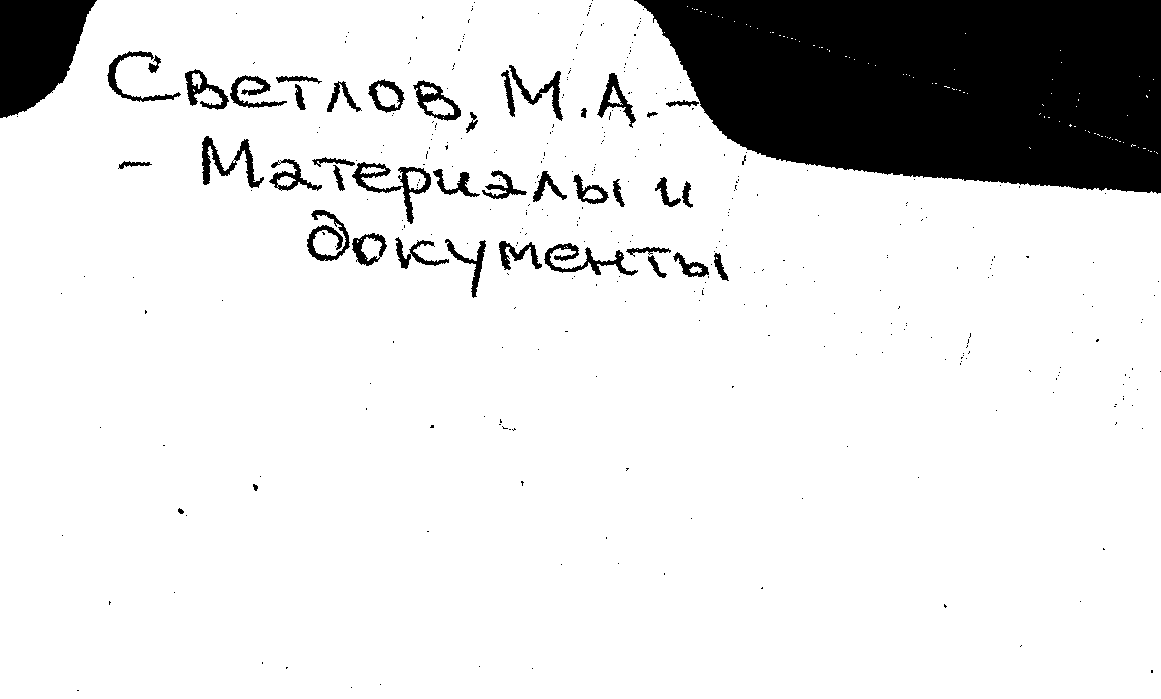 Светлов, М.А.-
- Материалы и
документы